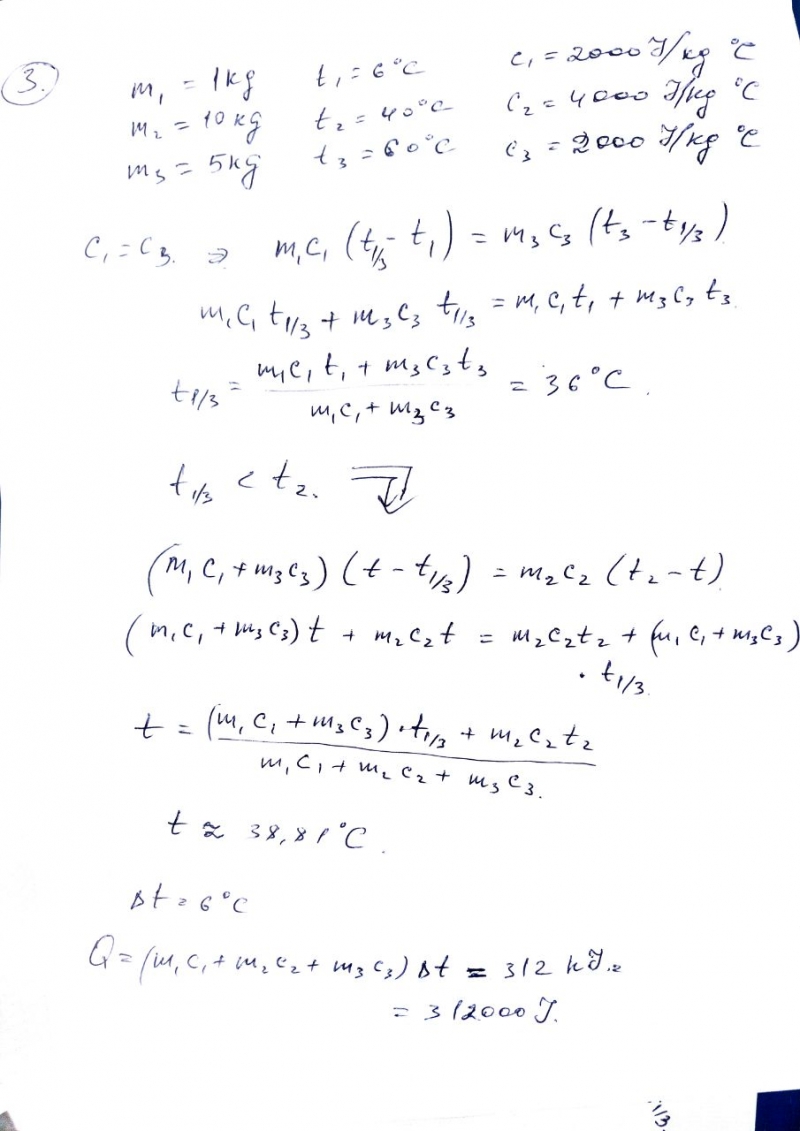 3.
m₁ = 1kg t₁ = 6°C c₁ = 2000 J/kg °C
m₂ = 10kg t₂ = 40°C c₂ = 4000 J/kg °C
m₃ = 5kg t₃ = 60°C c₃ = 2000 J/kg °C
c₁ = c₃. ⇒ m₁c₁ (t₁/₃ - t₁) = m₃c₃ (t₃ - t₁/₃)
m₁c₁ t₁/₃ + m₃c₃ t₁/₃ = m₁c₁t₁ + m₃c₃t₃
t₁/₃ = (m₁c₁t₁ + m₃c₃t₃) / (m₁c₁ + m₃c₃) = 36°C.
t₁/₃ < t₂.
(m₁c₁ + m₃c₃)(t - t₁/₃) = m₂c₂ (t₂ - t)
(m₁c₁ + m₃c₃)t + m₂c₂t = m₂c₂t₂ + (m₁c₁ + m₃c₃)
· t₁/₃.
t = ((m₁c₁ + m₃c₃)·t₁/₃ + m₂c₂t₂) / (m₁c₁ + m₂c₂ + m₃c₃.)
t ≈ 38,81°C.
Δt = 6°C
Q = (m₁c₁ + m₂c₂ + m₃c₃) Δt = 312 kJ. =
= 312000 J.
1/3.